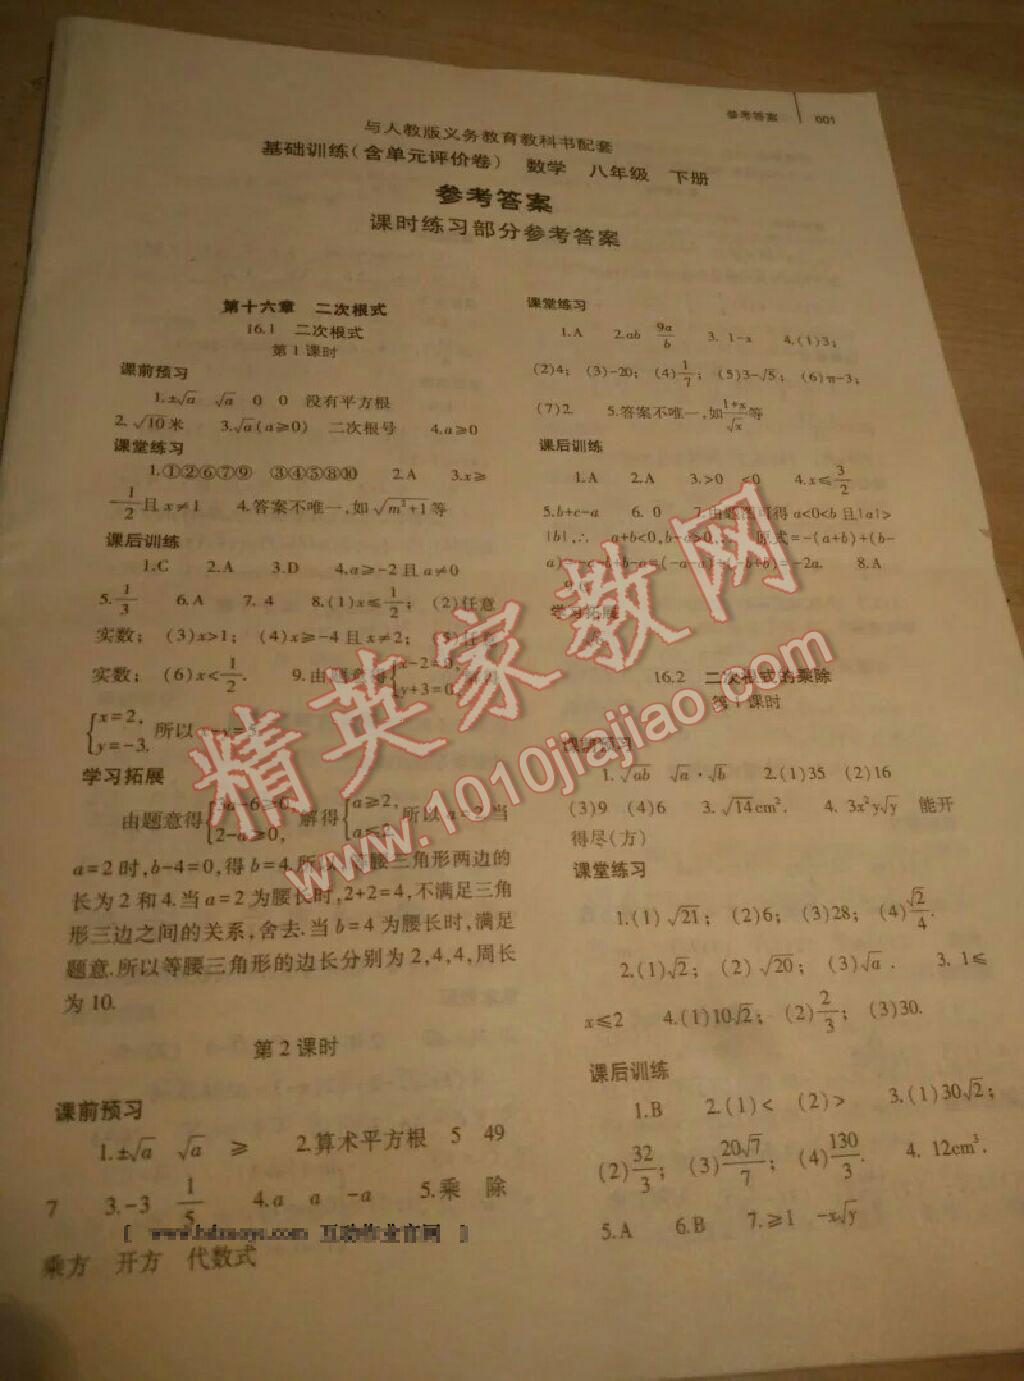 参考答案 001
与人教版义务教育教科书配套
基础训练(含单元评价卷) 数学 八年级 下册
参考答案
课时练习部分参考答案
第十六章 二次根式
16.1 二次根式
第1课时
课前预习
1.±√a √a 0 0 没有平方根
2. √10米 3.√a(a≥0) 二次根号 4.a≥0
课堂练习
1.①②⑥⑦⑨ ③④⑤⑧⑩ 2.A 3.x≥
-1/2且x≠1 4.答案不唯一,如√(m²+1)等
课后训练
1.C 2.A 3.D 4.a≥-2且a≠0
5.1/3 6.A 7. 4 8.(1)x≤1/2; (2)任意
实数; (3)x>1; (4)x≥-4且x≠2; (5)任意
实数; (6)x<1/2. 9.由题意得{x-2=0, y+3=0, 解得
{x=2, y=-3. 所以x-y=5.
学习拓展
由题意得{3a-6≥0, 2-a≥0, 解得{a≥2, a≤2, 所以a=2.当
a=2时,b-4=0,得b=4.所以等腰三角形两边的
长为2和4.当a=2为腰长时,2+2=4,不满足三角
形三边之间的关系,舍去.当b=4为腰长时,满足
题意.所以等腰三角形的边长分别为2,4,4,周长
为10.
第2课时
课前预习
1.±√a √a ≥ 2.算术平方根 5 49
7 3.-3 1/5 4.a a -a 5.乘 除
乘方 开方 代数式
[ 互动作业官网 ]
课堂练习
1.A 2.ab 9a/b 3. 1-x 4.(1)3;
(2)4; (3)-20; (4)1/7; (5)3-√5; (6)π-3;
(7)2. 5.答案不唯一,如(1+x)/√x等
课后训练
1.A 2.A 3.>0 <0 4.x≤3/2
5.b+c-a 6. 0 7.由题图可得a<0<b且|a|>
|b|,∴ a+b<0,b-a>0,∴ 原式=-(a+b)+(b-
a)=-a-b+b-a=(-a-a)+(-b+b)=-2a. 8.A
学习拓展
16.2 二次根式的乘除
第1课时
课前预习
1.√ab √a·√b 2.(1)35 (2)16
(3)9 (4)6 3. √14cm². 4. 3x²y√y 能开
得尽(方)
课堂练习
1.(1) √21; (2)6; (3)28; (4)√2/4.
2.(1)√2; (2) √20; (3)√a . 3. 1≤
x≤2 4.(1)10√2; (2)2/3; (3)30.
课后训练
1.B 2.(1)< (2)> 3.(1)30√2;
(2)32/3; (3)20√7/7; (4)130/3. 4. 12cm³.
5.A 6.B 7.≥1 -x√y
精英家教网
www.1010jiajiao.com